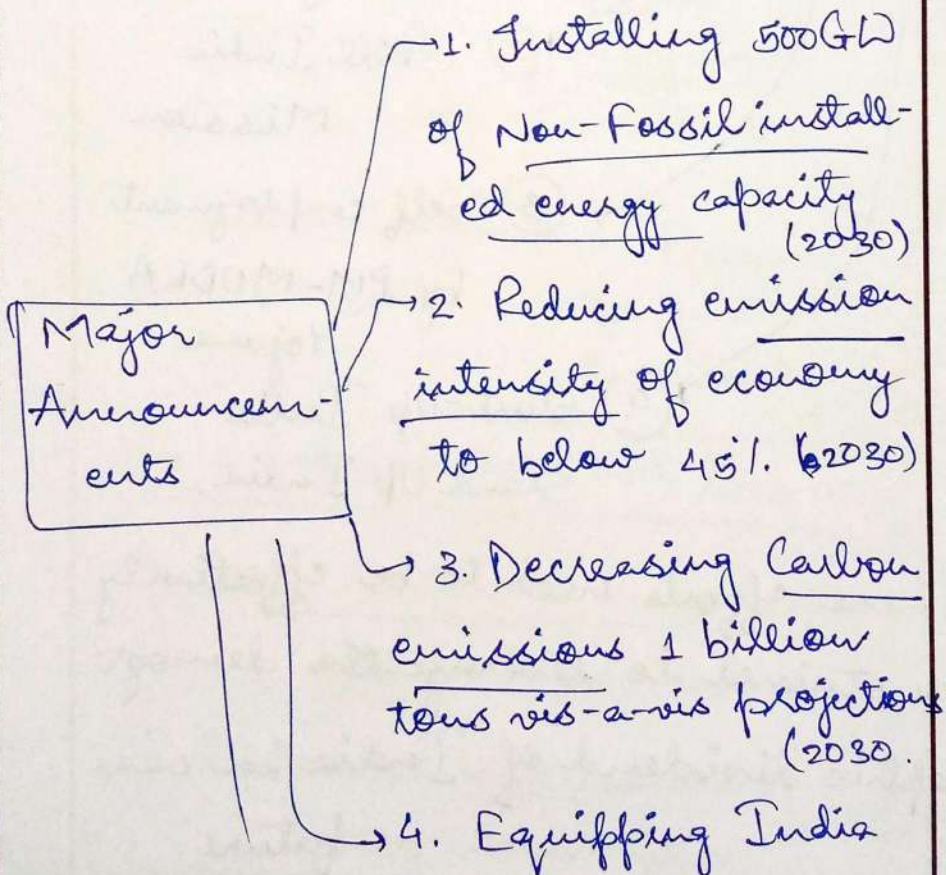 1. Installing 500GW
of Non-Fossil install-
ed energy capacity
(2030)
2. Reducing emission
intensity of economy
to below 45%. (2030)
3. Decreasing Carbon
emissions 1 billion
tons vis-a-vis projections
(2030.
4. Equipping India
Major
Announcem-
ents